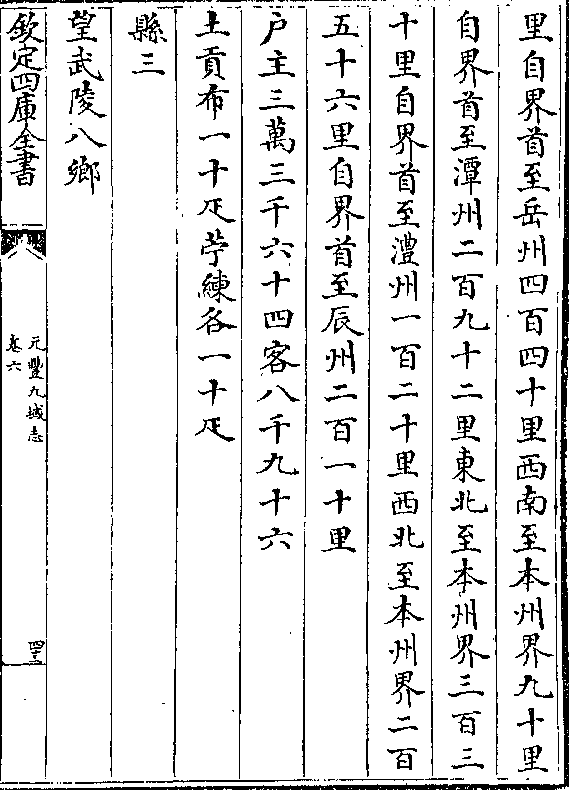 里自界首至岳州四百四十里西南至本州界九十里
自界首至潭州二百九十二里東北至本州界三百三
十里自界首至澧州一百二十里西北至本州界二百
五十六里自界首至辰州二百一十里
户主三萬三千六十四客八千九十六
土貢布一十疋苧練各一十疋
縣三
望武陵八鄉
欽定四庫全書
元豐九域志
卷六